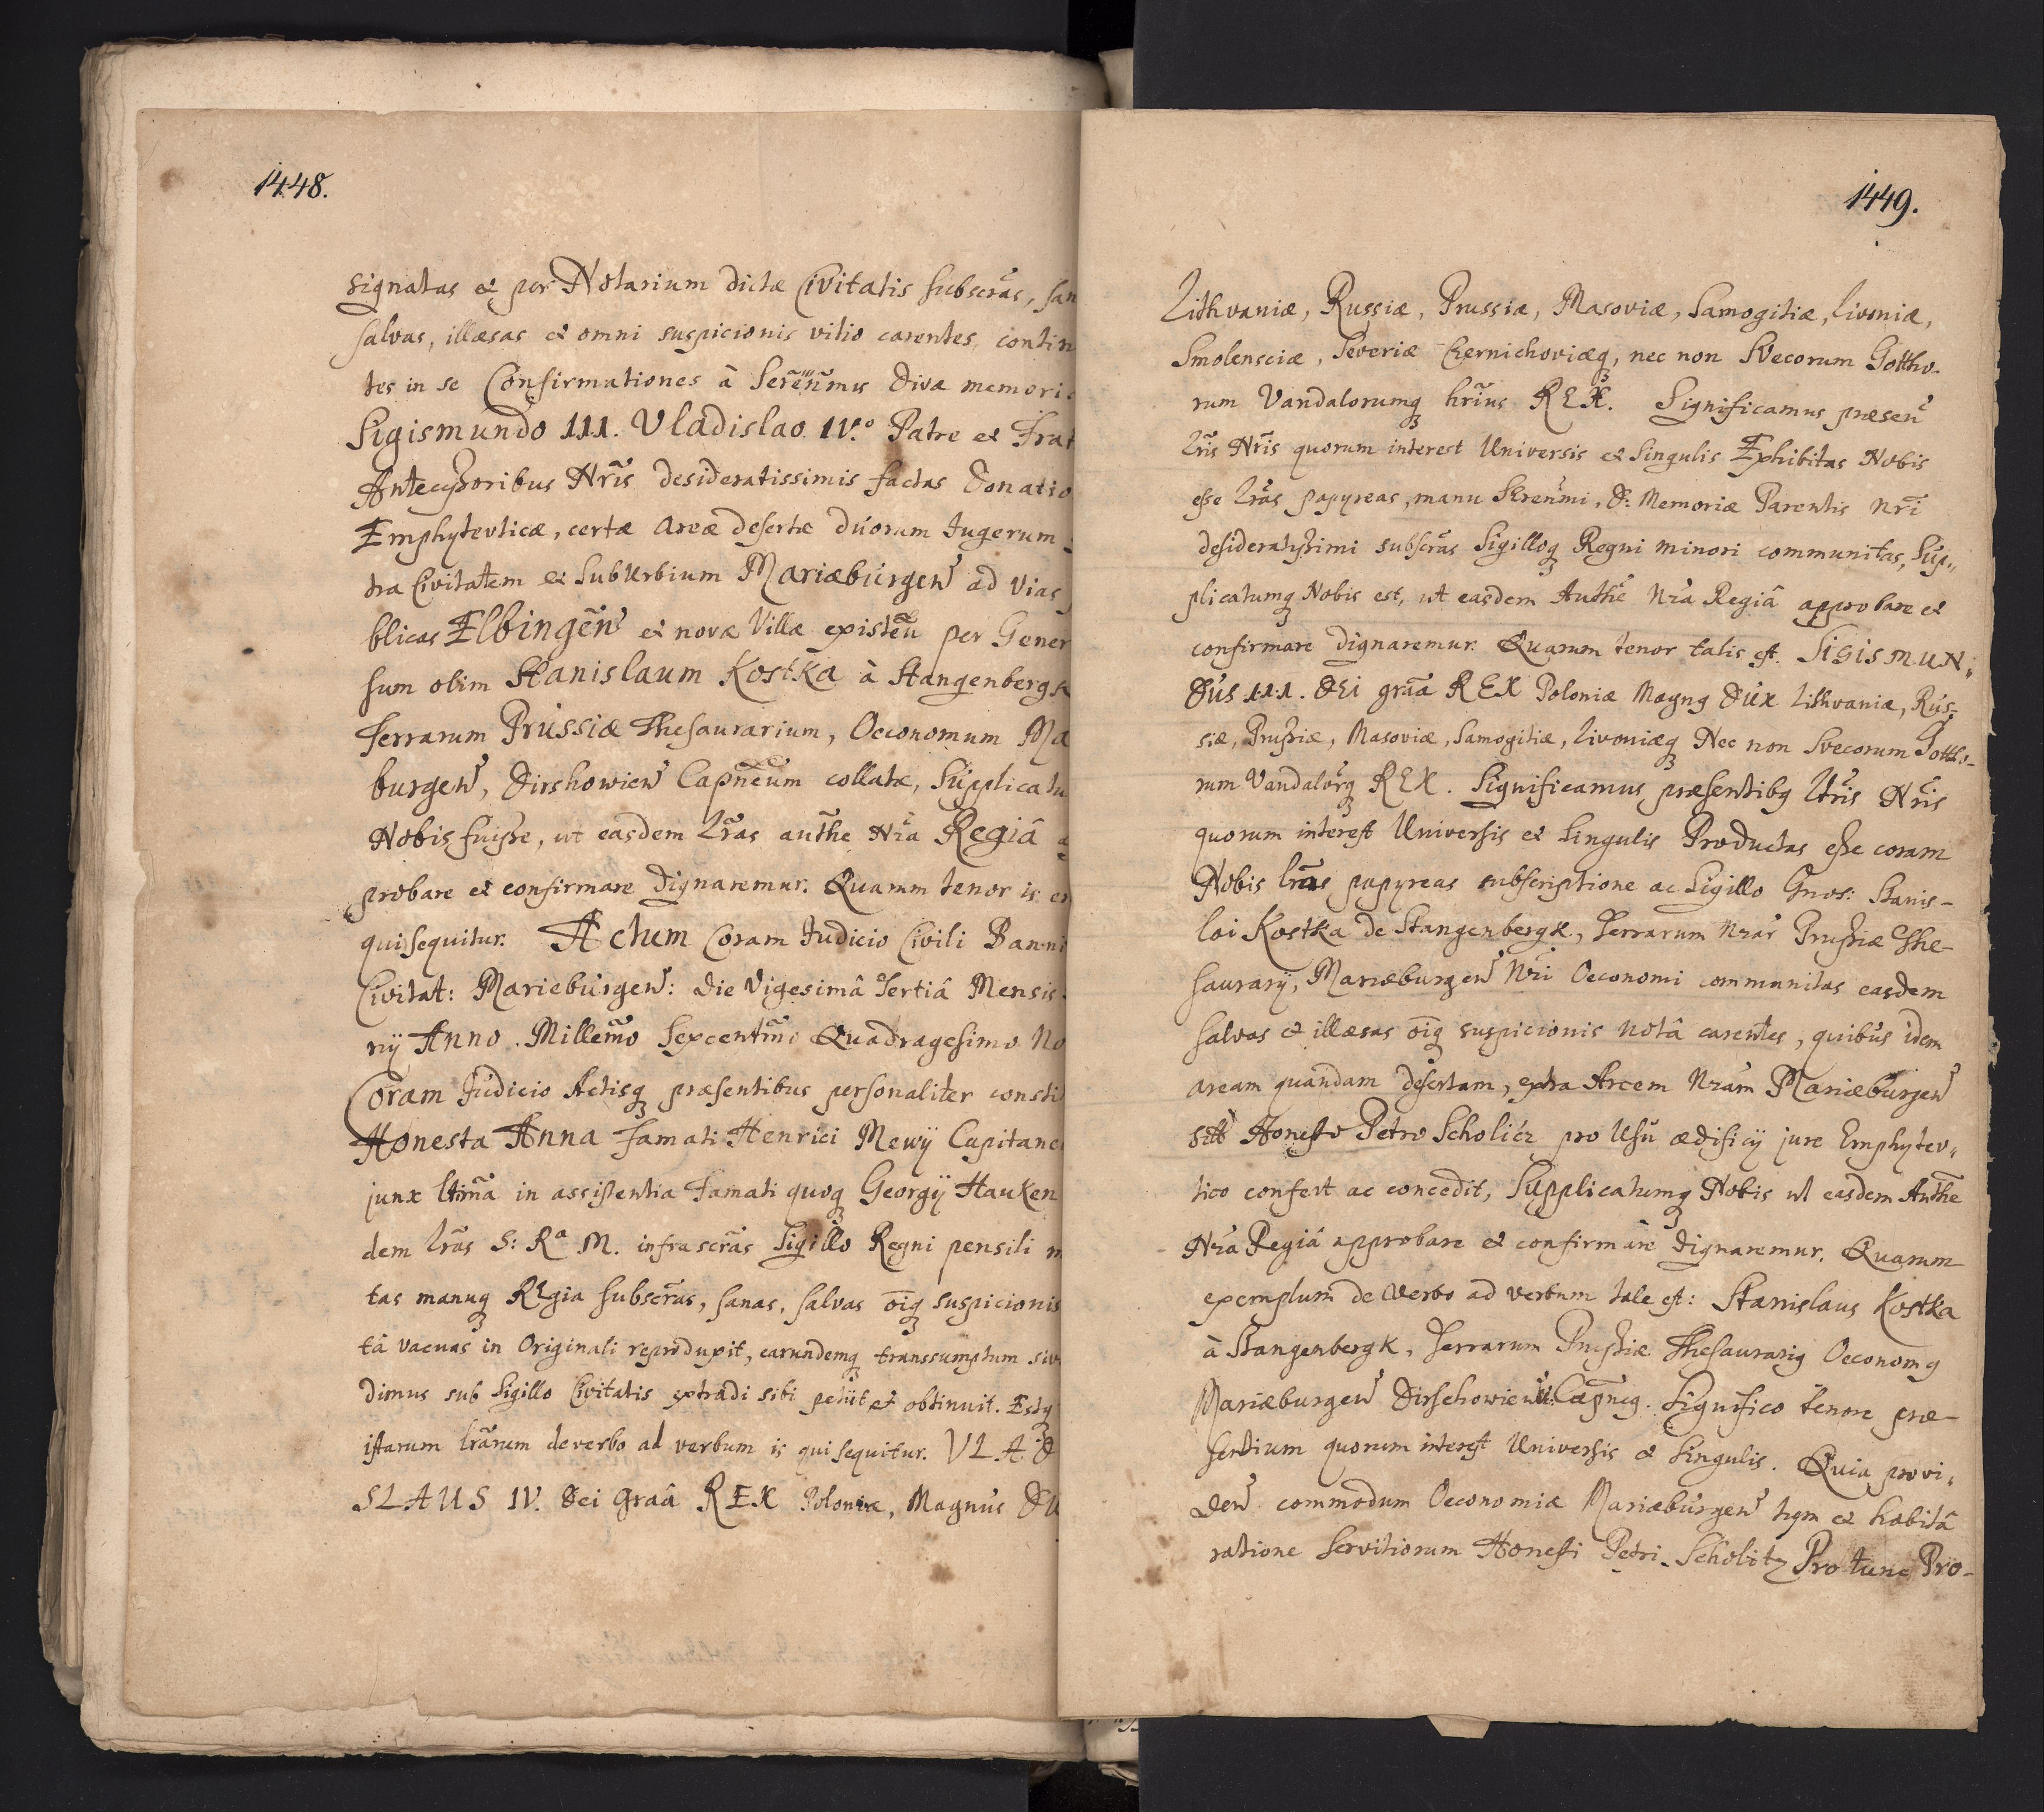 1448.
signatas et per Notarium dictæ Civitatis subscras, san
salvas, illæsas et omni suspicionis vitio carentes, contin
tes in se Confirmationes à Serenmus Divæ memori
Sigismundo III. Vladislao IV.o Patre et Frat
Antecessoribus Nris desideratissimis factas Donatio
Emphyteuticæ, certæ Areæ desertæ duorum Iugerum
tra Civitatem et SubUrbium Mariæburgen ad Vias
blicas Elbingen et novæ Villæ existen per Gener
sum olim Stanislaum Kostka à Stangenbergk
Terrarum Prussiæ Thesaurarium, Oeconomum Ma
burgen, Dirshowien Capneum collatæ, Supplicatu
Nobis fuisse, ut easdem lras authe Nra Regiâ a
probare et confirmare dignaremur. Quarum tenor is e
qui sequitur. Actum Coram Iudicio Civili Banni
Civitat: Marieburgen: die Vigesimâ Tertiâ Mensis
rij Anno Millemo Sexcentmo Quadragesimo No
Coram Judicio Actisq præsentibus personaliter consti
Honesta Anna Famati Henrici Mewij Capitane
junx ltima in assistentia Famati quoq Georgij Hauken
dem lras S: Ra M. infrascras Sigillo Regni pensili m
tas manuq Regia subscras, sanas, salvas oiq suspicionis
tâ vacuas in Originali reproduxit, earundemq transsumptum siv
dimus sub Sigillo Civitatis extradi sibi petiit et obtinuit. Estq
istarum lrarum de verbo ad verbum is qui sequitur. VLAD
SLAUS IV. Dei Graâ REX Poloniæ, Magnus Du
1449.
Lithvaniæ, Russiæ, Prussiæ, Masoviæ, Samogitiæ, Livoniæ,
Smolensciæ, Severiæ Chernichoviæq, nec non Svecorum Gottho-
rum Vandalorumq hrius REX. Significamus præsen
lris Nris quorum interest Universis et Singulis Exhibitas Nobis
esse lras papyreas, manu Serenmi, D: Memoriæ Parentis Nri
desideratissimi subscras Sigilloq Regni minori communitas, Sup„
plicatumq Nobis est, ut easdem Authe Nra Regiâ approbare et
confirmare dignaremur. Quarum tenor talis est. SIGISMUN„
DUS III. DEI graa REX Poloniæ Magng Dux Lithvaniæ, Rus-
siæ, Prussiæ, Masoviæ, Samogitiæ, Livoniæq Nec non Svecorum Gottho-
rum Vandalorq REX. Significamus præsentibq ltris Nris
quorum interest Universis et Singulis Productas esse coram
Nobis lras papyreas subscriptione ac Sigillo Gnos: Stanis-
lai Kostka de Stangenbergk, Terrarum Nrar Prussiæ The-
saurarij, Mariæburgen Nri Oeconomi communitas easdem
salvas et illæsas oiq suspicionis notâ carentes, quibus idem
aream quandam desertam, extra Arcem Nram Mariæburgen
Honesto Petro Scholicz pro Usu ædificij jure Emphyteu„
tico confert ac concedit, Supplicatumq Nobis ut easdem Authe
Nra Regiâ approbare et confirmare dignaremur. Quarum
exemplum de verbo ad verbum tale est: Stanislaus Kostka
à Stangenbergk, Terrarum Prussiæ Thesaurariq Oeconomq
Mariæburgen Dirschowien Capneq. Significo tenore præ-
sentium quorum interest Universis et Singulis. Quia provi„
den commodum Oeconomiæ Mariæburgen tqm et habitâ
ratione Servitiorum Honesti Petri Scholitz Pro tunc Pro-